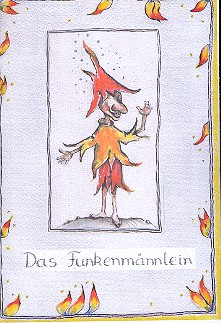 Das Funkenmännlein